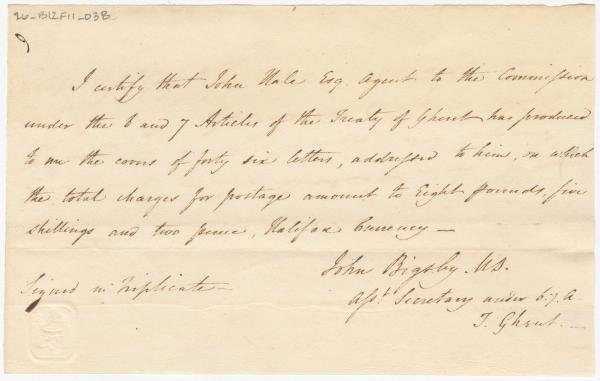 26-B12F11-03B
9
I certify that John Hale Esq. Agent to the Commission
under the 6 and 7 Articles of the Treaty of Ghent has produced
to me the covers of forty six letters, addressed to him, on which
the total charges for postage amount to Eight pounds, five
shillings and two pence, Halifax Currency —
John Bigsby. MD.
Asst. Secretary under 6.7. A.
T. Ghent. —
Signed in Triplicate —